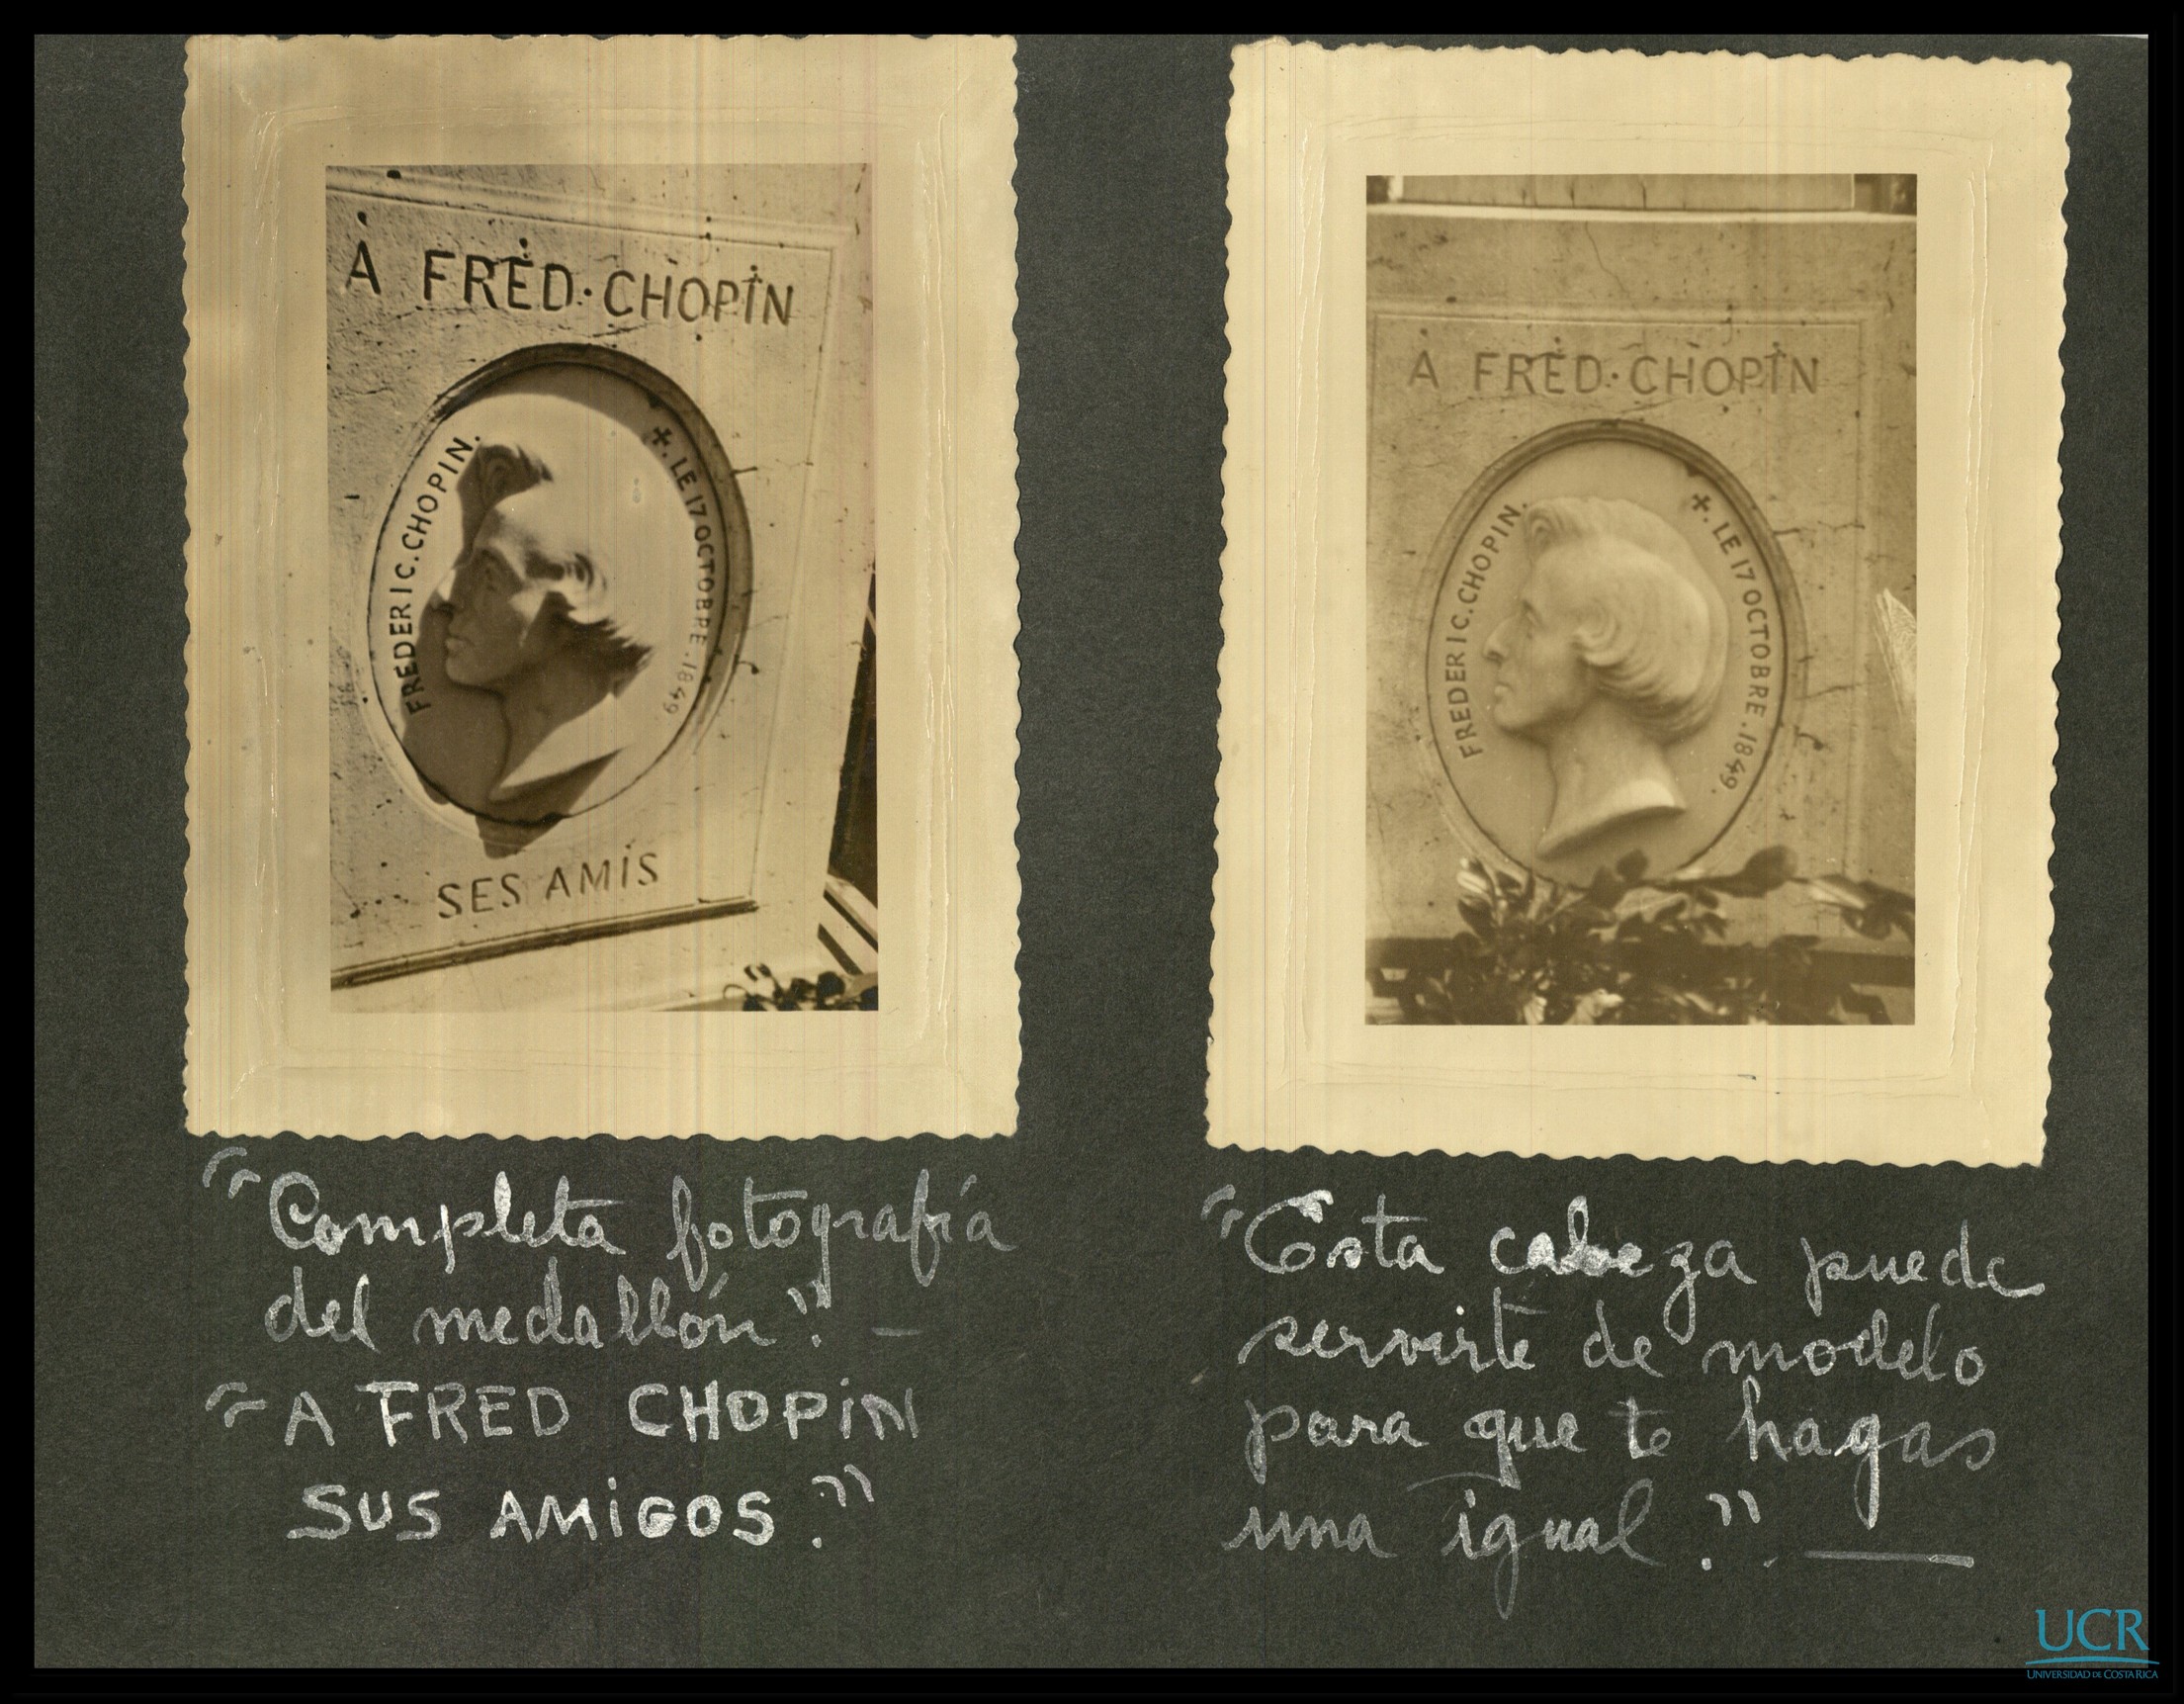 A FRED·CHOPIN
FREDERIC.CHOPIN.
+. LE 17 OCTOBRE.1849.
SES AMIS
A FRED·CHOPIN
FREDERIC.CHOPIN.
+. LE 17 OCTOBRE.1849.
"Completa fotografía
del medallón". –
"A FRED CHOPIN
SUS AMIGOS."
"Esta cabeza puede
servirte de modelo
para que te hagas
una igual". —
UCR
UNIVERSIDAD DE COSTA RICA